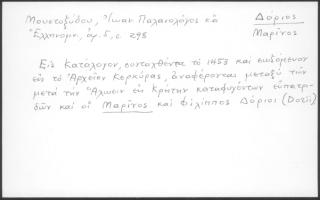 Μουστοξύδου, Ἰωαν. Παλαιολόγος κἀ
Δόριος
Ἑλληνομν., ἀρ. 5, σ. 295
Μαρῖνος
Εἰς κατάλογον, συνταχθέντα τὸ 1453 καὶ σωζόμενον
εἰς τὸ Ἀρχεῖον Κερκύρας, ἀναφέρονται μεταξὺ τῶν
μετὰ τὴν Ἅλωσιν εἰς Κρήτην καταφυγόντων εὐπατρι-
δῶν καὶ οἱ Μαρῖνος καὶ Φίλιππος Δόριοι (Dorii)